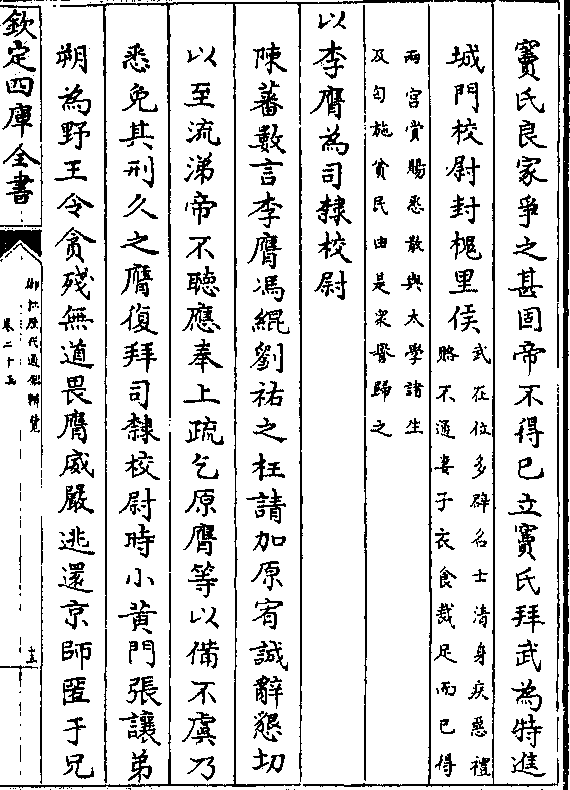 竇氏良家爭之甚固帝不得已立竇氏拜武為特進
城門校尉封槐里侯武在位多辟名士清身疾惡禮
賂不通妻子衣食裁足而已得
兩宮賞賜悉散與太學諸生
及匄施貧民由是衆譽歸之
以李膺為司隸校尉
陳蕃數言李膺馮緄劉祐之枉請加原宥誠辭懇切
以至流涕帝不聽應奉上疏乞原膺等以備不虞乃
悉免其刑久之膺復拜司隸校尉時小黃門張讓弟
朔為野王令貪殘無道畏膺威嚴逃還京師匿于兄
欽定四庫全書
御批歷代通鑑輯覽
卷二十五